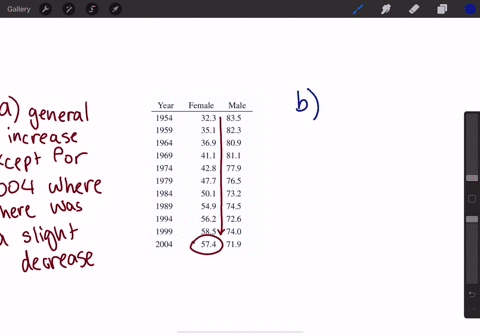 Gallery
a) general
increase
except for
2004 where
there was
a slight
decrease
Year Female Male
1954 32.3 83.5
1959 35.1 82.3
1964 36.9 80.9
1969 41.1 81.1
1974 42.8 77.9
1979 47.7 76.5
1984 50.1 73.2
1989 54.9 74.5
1994 56.2 72.6
1999 58.5 74.0
2004 57.4 71.9
b)